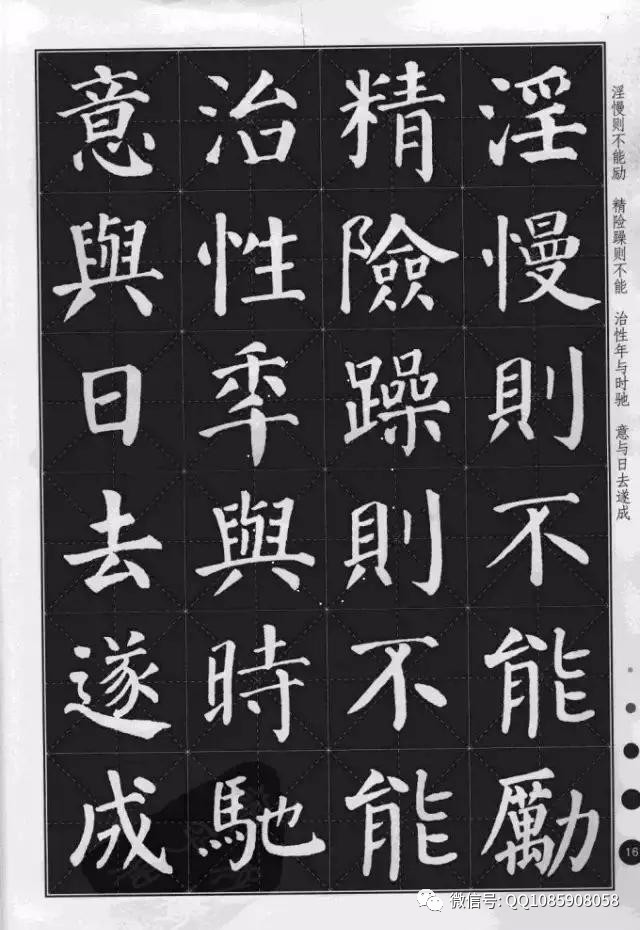 淫慢則不能勵
精險躁則不能
治性年與時馳
意與日去遂成
淫慢则不能励 精险躁则不能 治性年与时驰 意与日去遂成
16
微信号: QQ1085908058